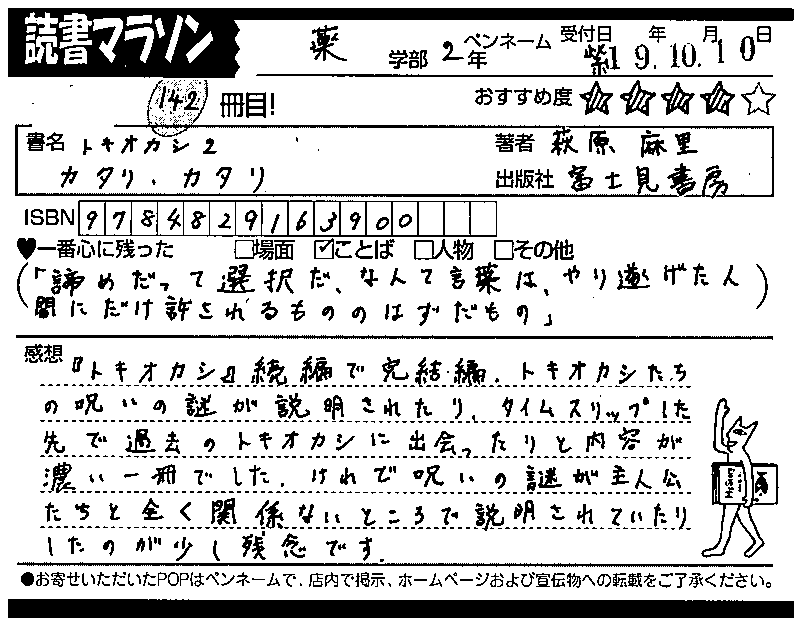 読書マラソン
薬 学部 2年 ペンネーム 紫 受付日 19年10月10日
142 冊目!
おすすめ度 ★★★★☆
書名 トキオカシ2
カタリ、カタリ
著者 萩原 麻里
出版社 富士見書房
ISBN 9784829163900
♥一番心に残った □場面 ☑ことば □人物 □その他
(「諦めだって選択だ、なんて言葉は、やり遂げた人
間にだけ許されるもののはずだもの」)
感想 『トキオカシ』続編で完結編。トキオカシたち
の呪いの謎が説明されたり、タイムスリップした
先で過去のトキオカシに出会ったりと内容が
濃い一冊でした。けれど呪いの謎が主人公
たちと全く関係ないところで説明されていたり
したのが少し残念です。
●お寄せいただいたPOPはペンネームで、店内で掲示、ホームページおよび宣伝物への転載をご了承ください。